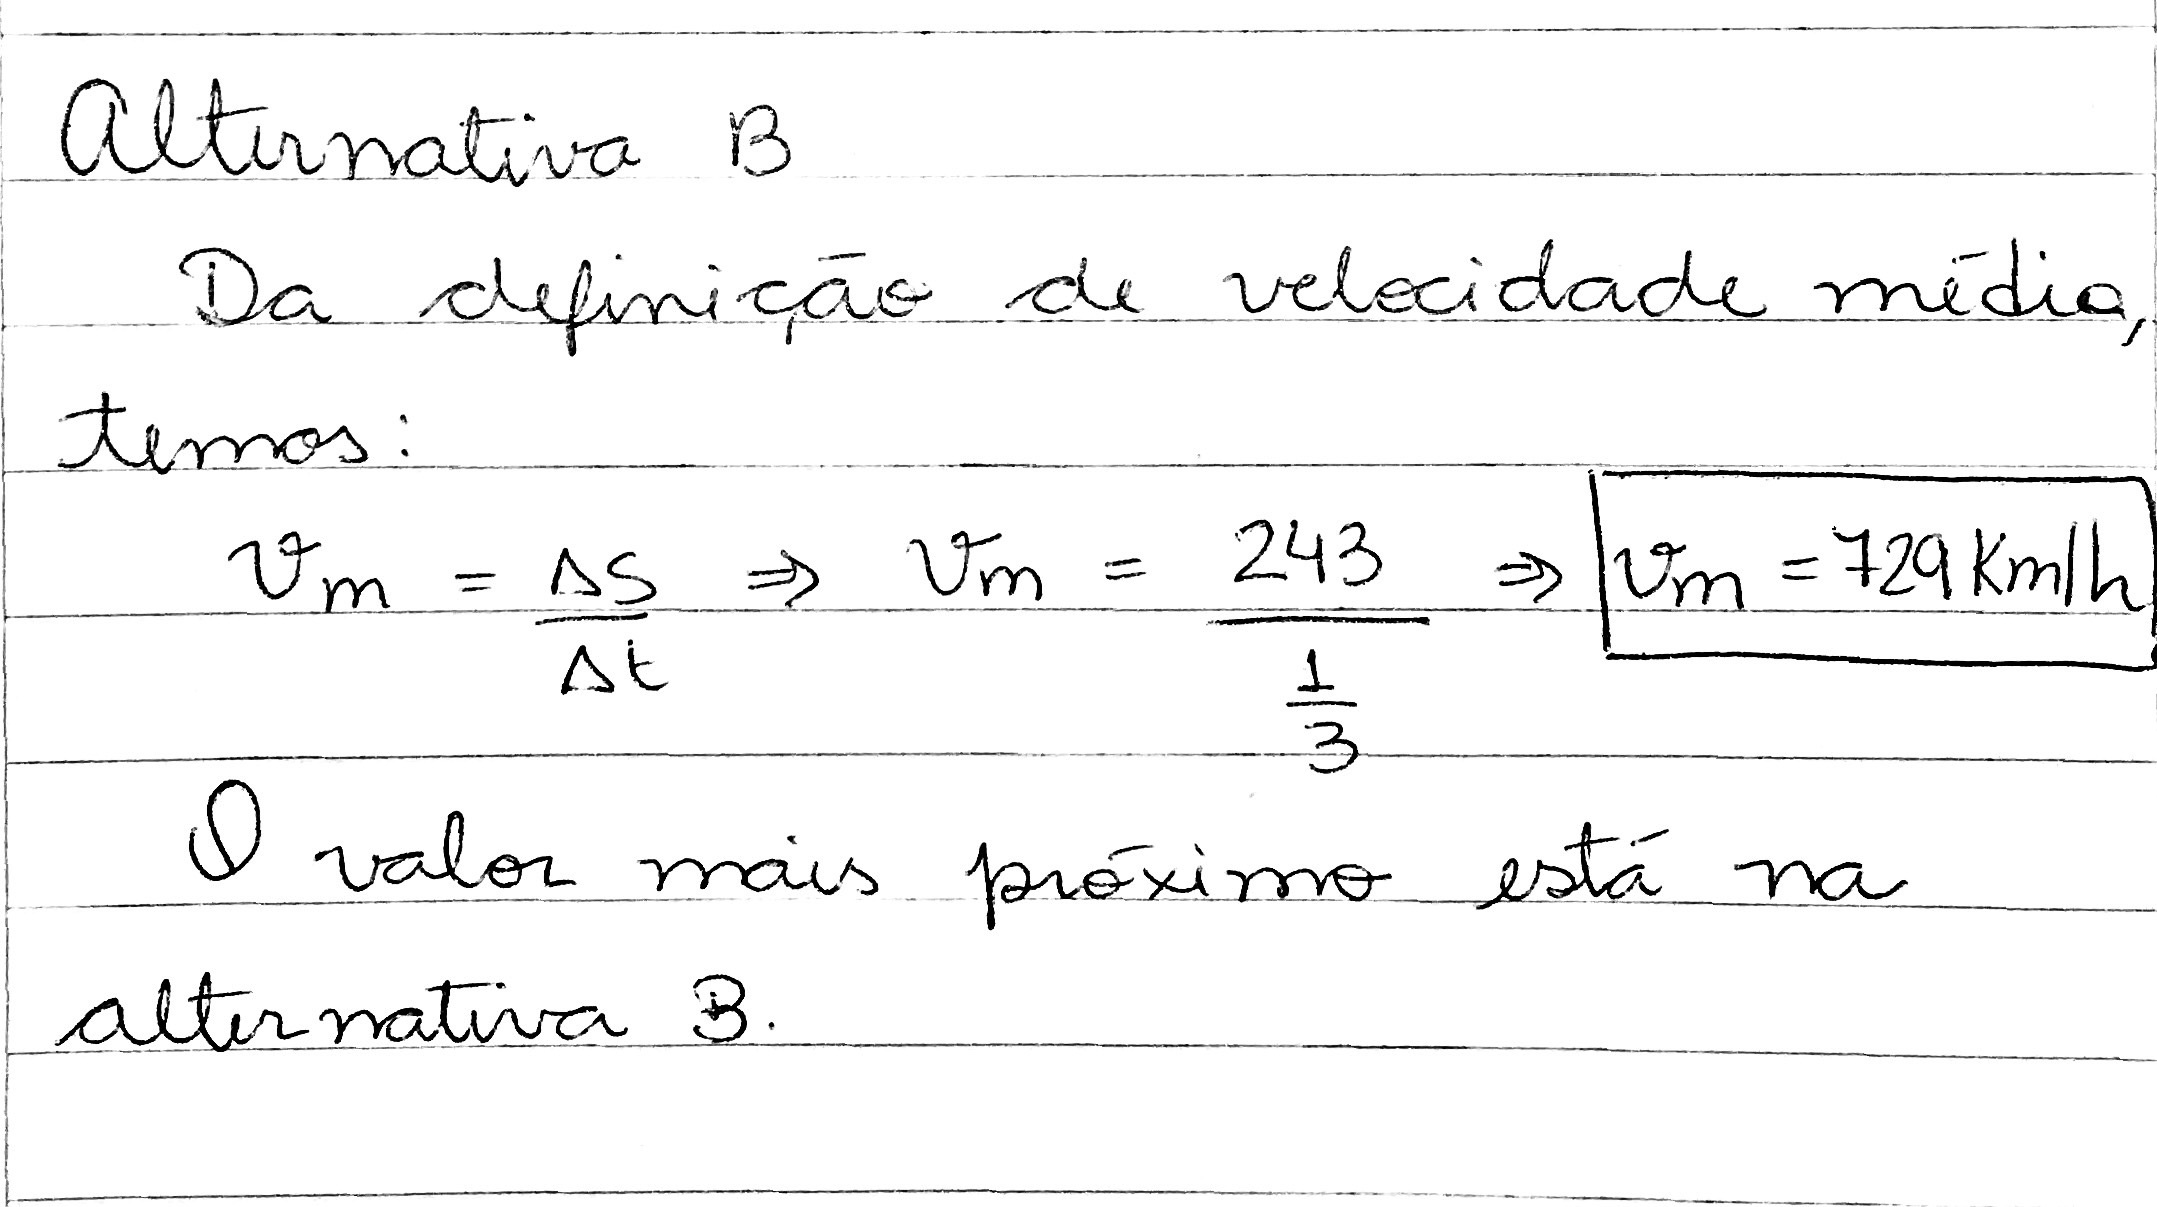 Alternativa B
Da definição de velocidade média,
temos:
Vm = ΔS/Δt ⇒ Vm = 243/(1/3) ⇒ Vm = 729 Km/h
O valor mais próximo está na
alternativa B.